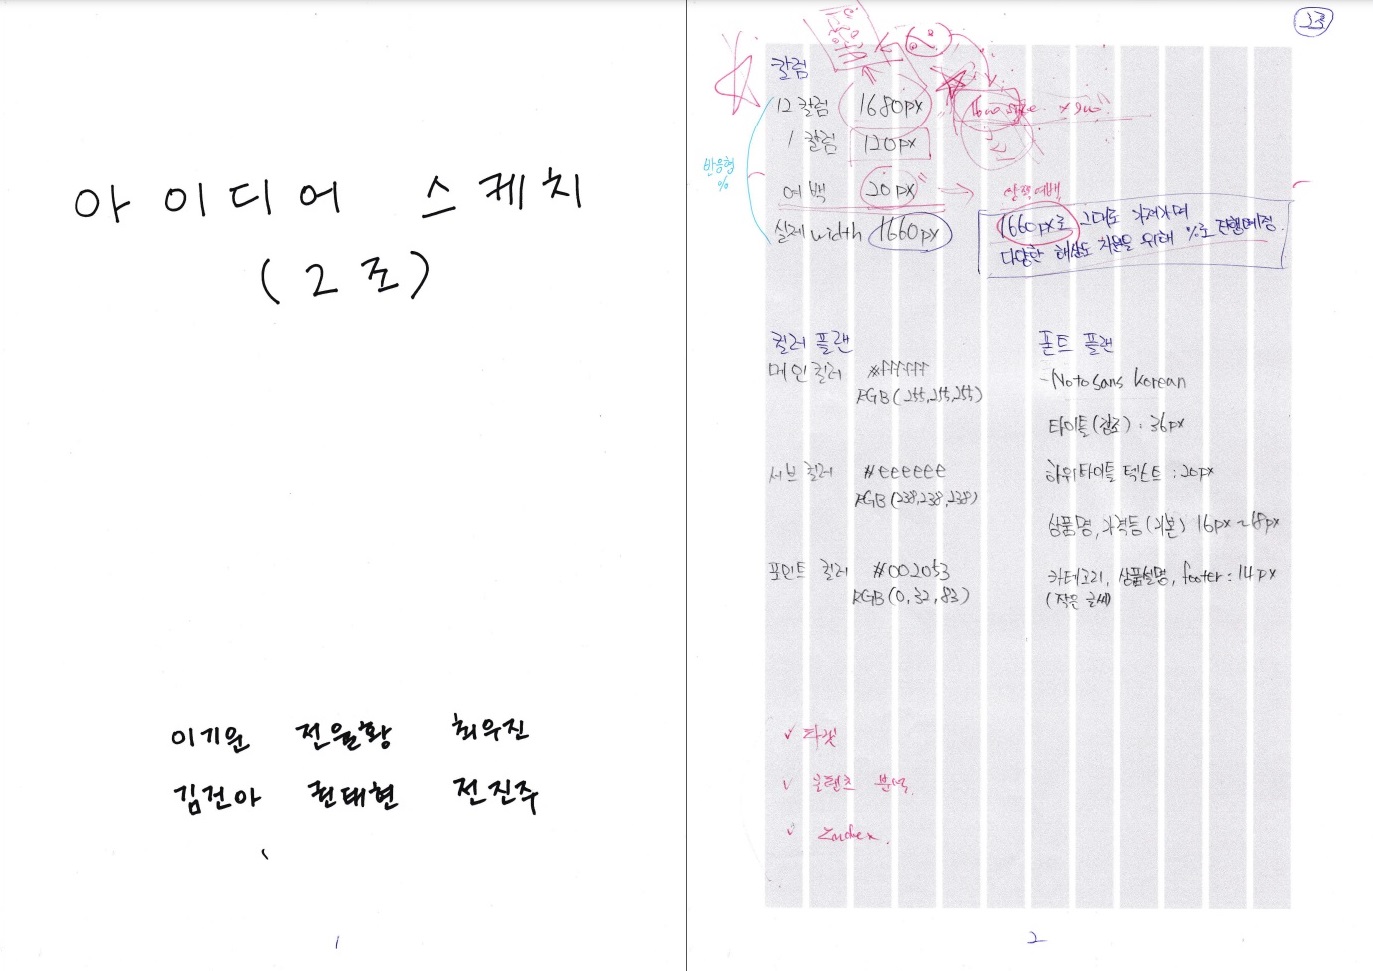 아이디어 스케치
(2조)
이기운 전율황 최우진
김건아 권태현 전진주
1
2조
칼럼
12 칼럼 1680px
1 칼럼 120px
반응형
%
여백 20px
안쪽여백
실제 width 1660px
1660px로 그대로 가져가며
다양한 해상도 지원을 위해 %로 진행예정.
컬러 플랜
메인컬러 #ffffff
RGB(255,255,255)
서브 컬러 #eeeeee
RGB(238,238,238)
포인트 컬러 #002053
RGB(0,32,83)
폰트 플랜
-Noto Sans Korean
타이틀(강조) : 36px
하위타이틀 텍스트 : 20px
상품명, 가격등(기본) 16px~18px
카테고리, 상품설명, footer : 14px
(작은 글씨)
✓ 타겟
✓ 콘텐츠 분석.
✓
2